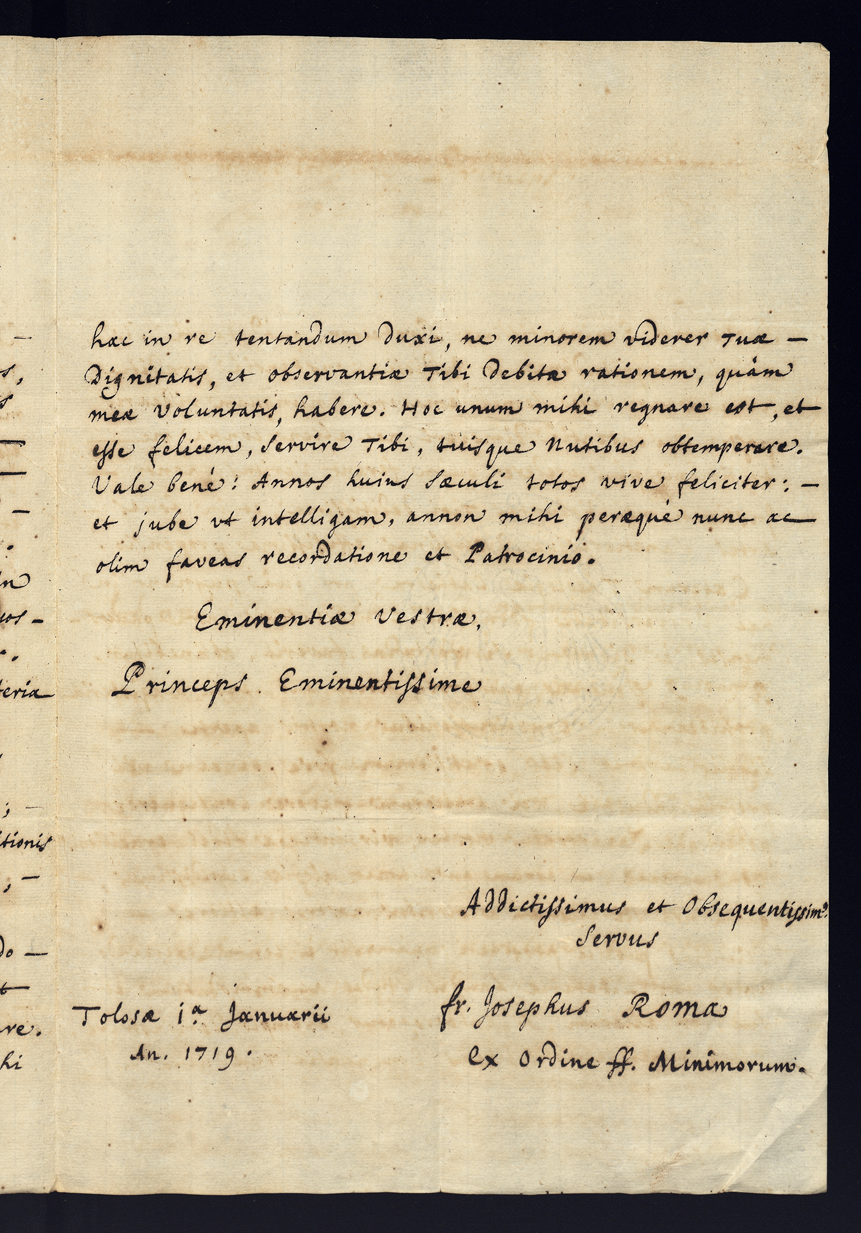 hæc in re tentandum duxi, ne minorem viderer Tuæ —
Dignitatis, et observantiæ Tibi Debitæ rationem, quàm
meæ voluntatis, habere. Hoc unum mihi regnare est, et
esse felicem, servire Tibi, tuisque Nutibus obtemperare.
Vale benè: Annos huius sæculi totos vive feliciter: —
et jube vt intelligam, annon mihi peræquè nunc ac
olim faveas recordatione et Patrocinio.
Eminentiæ Vestræ,
Princeps Eminentissime
Addictissimus et Obsequentissimꝰ
Servus
Tolosæ 1.ª Januarii
An. 1719.
fr. Josephus Roma
ex Ordine ff. Minimorum.
s,
s
in
uos-
teria
;
itionis
, —
do —
t
re.
hi